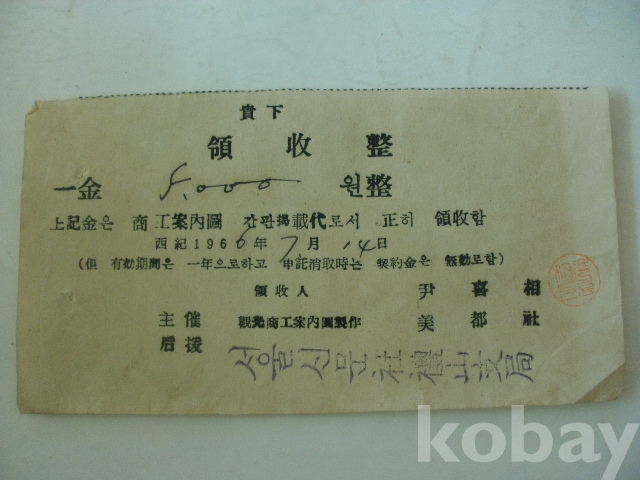 貴下
領收整
一金 5,000 원整
上記金은 商工案內圖 간판揭載代로서 正히 領收함
西紀1966年 7月 14日
(但 有効期間은 一年으로하고 申託消取時는 契約金은 無効로함)
領收人 尹喜相
主催 觀光商工案內圖製作 美都社
后援 서울신문社禮山支局
kobay